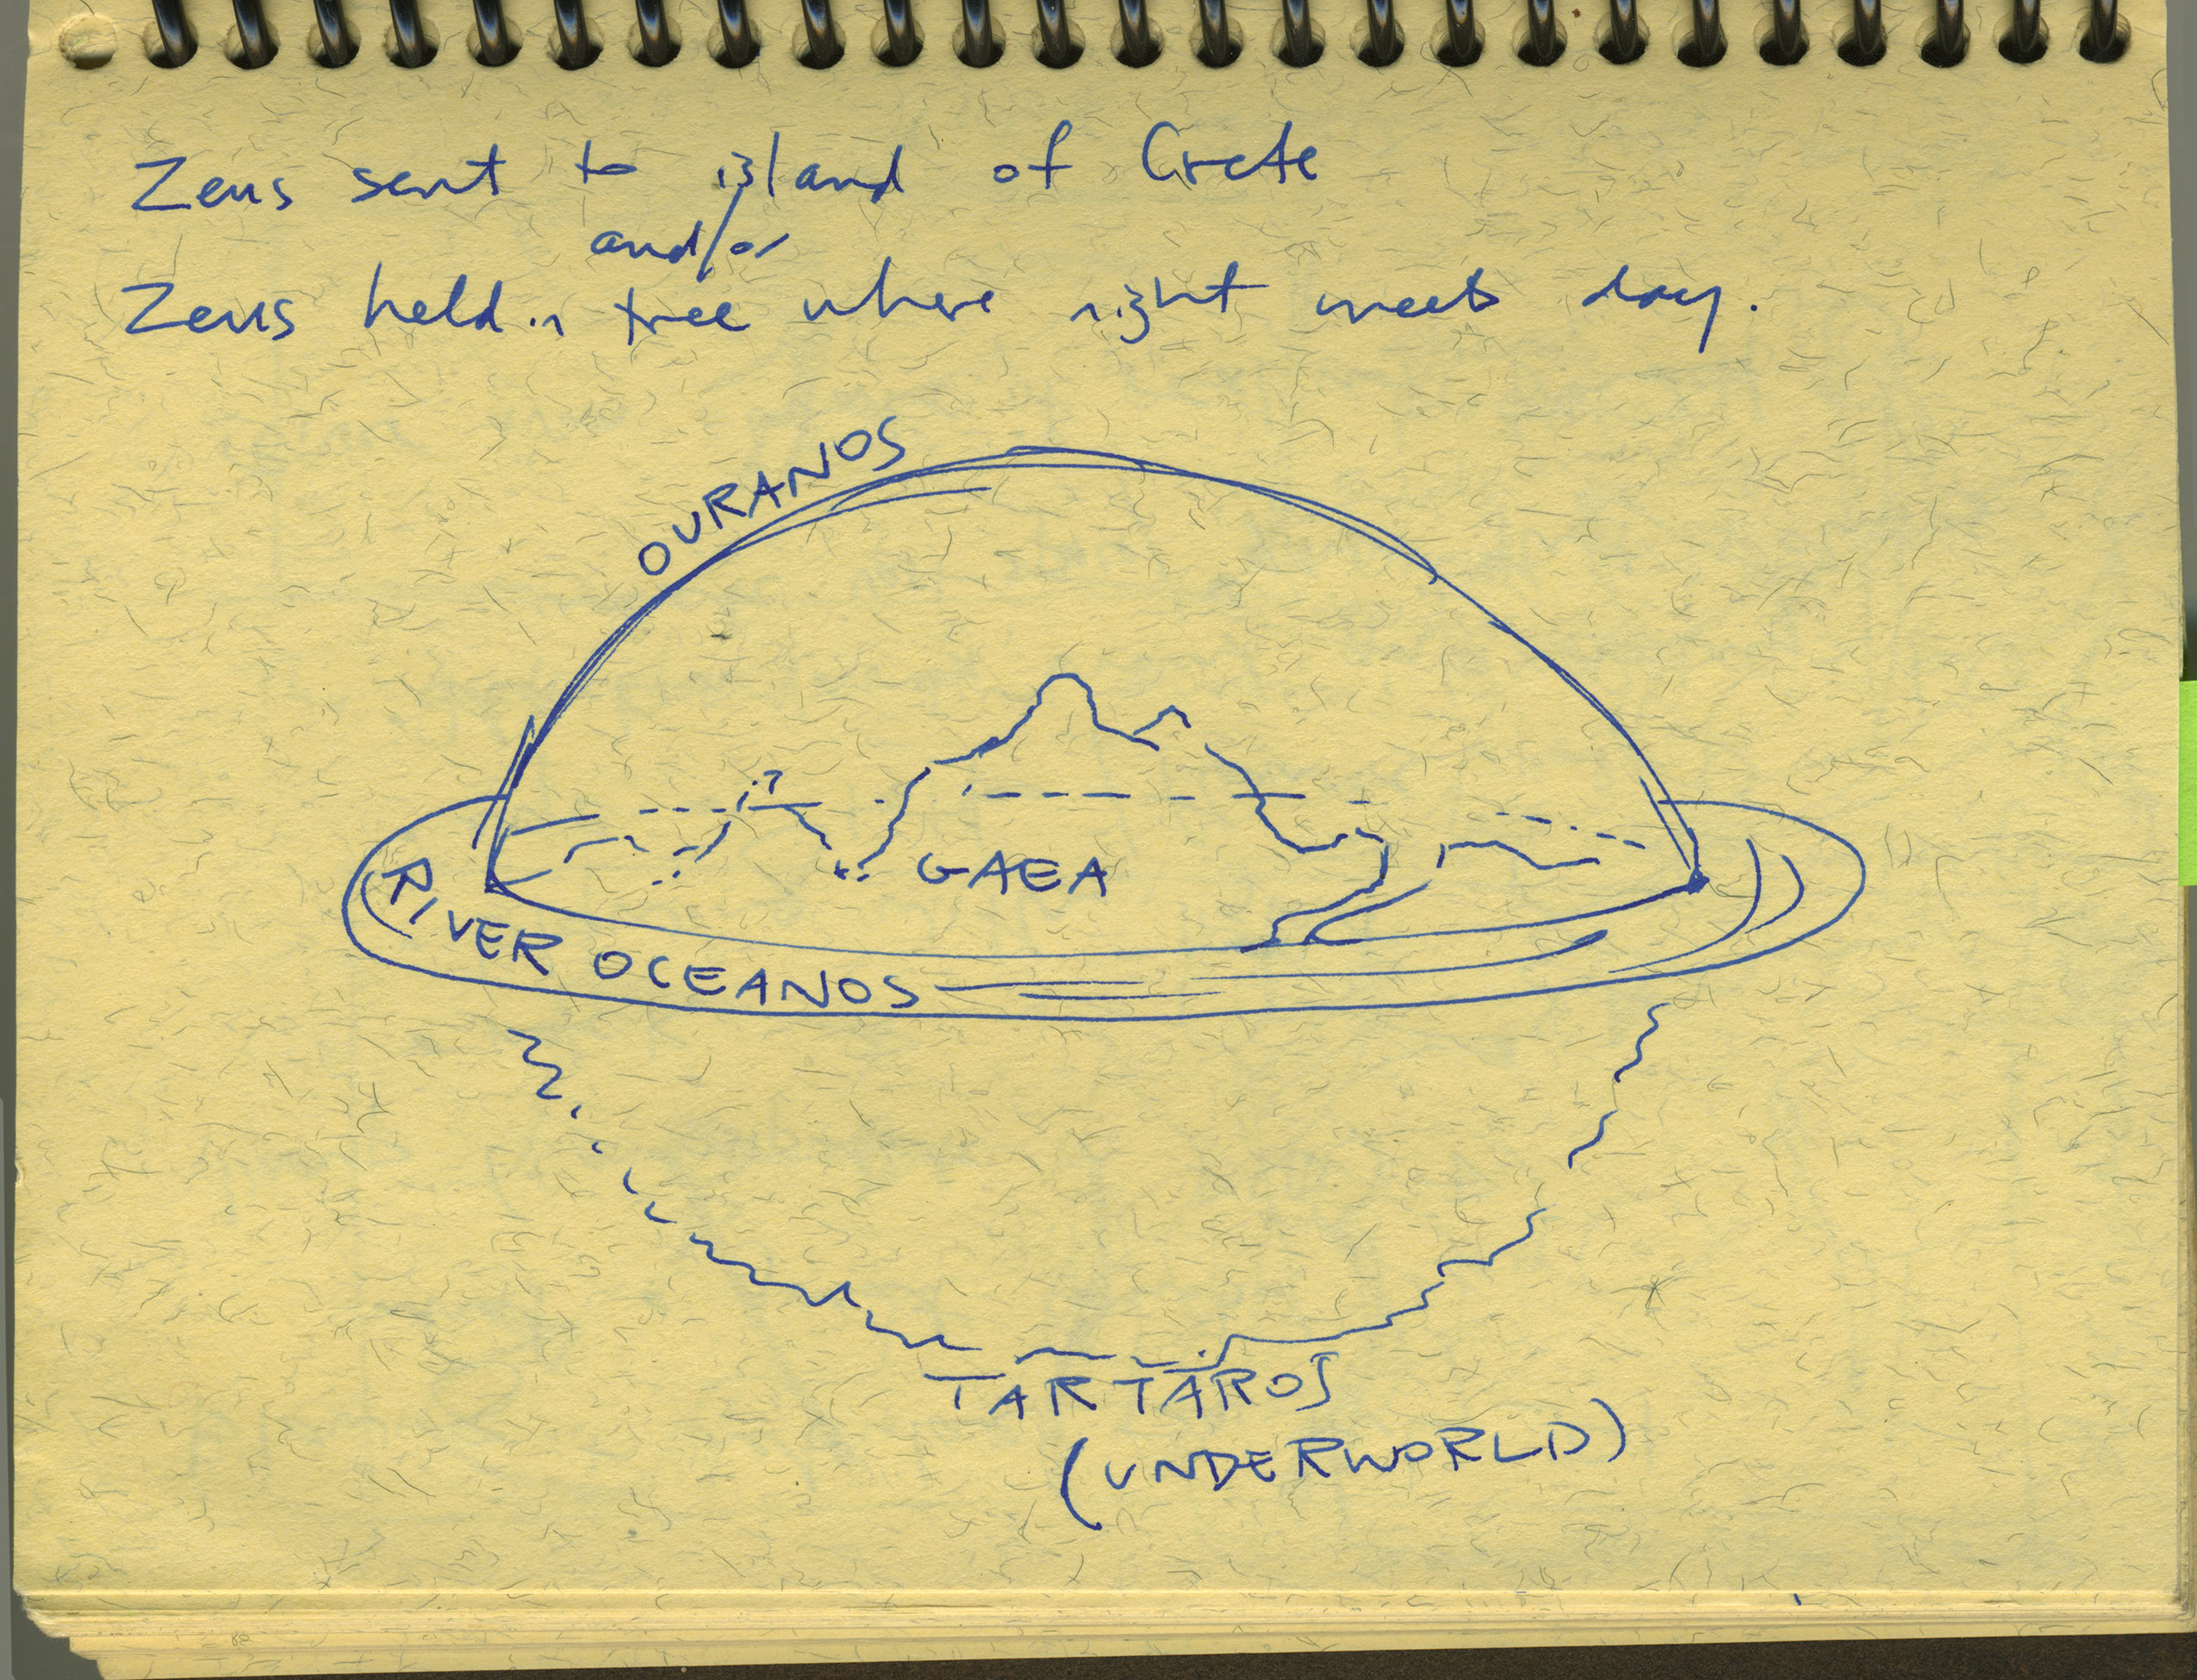 Zeus sent to island of Crete
and/or
Zeus held in tree where night meets day.
OURANOS
GAEA
RIVER OCEANOS
TARTAROS
(UNDERWORLD)